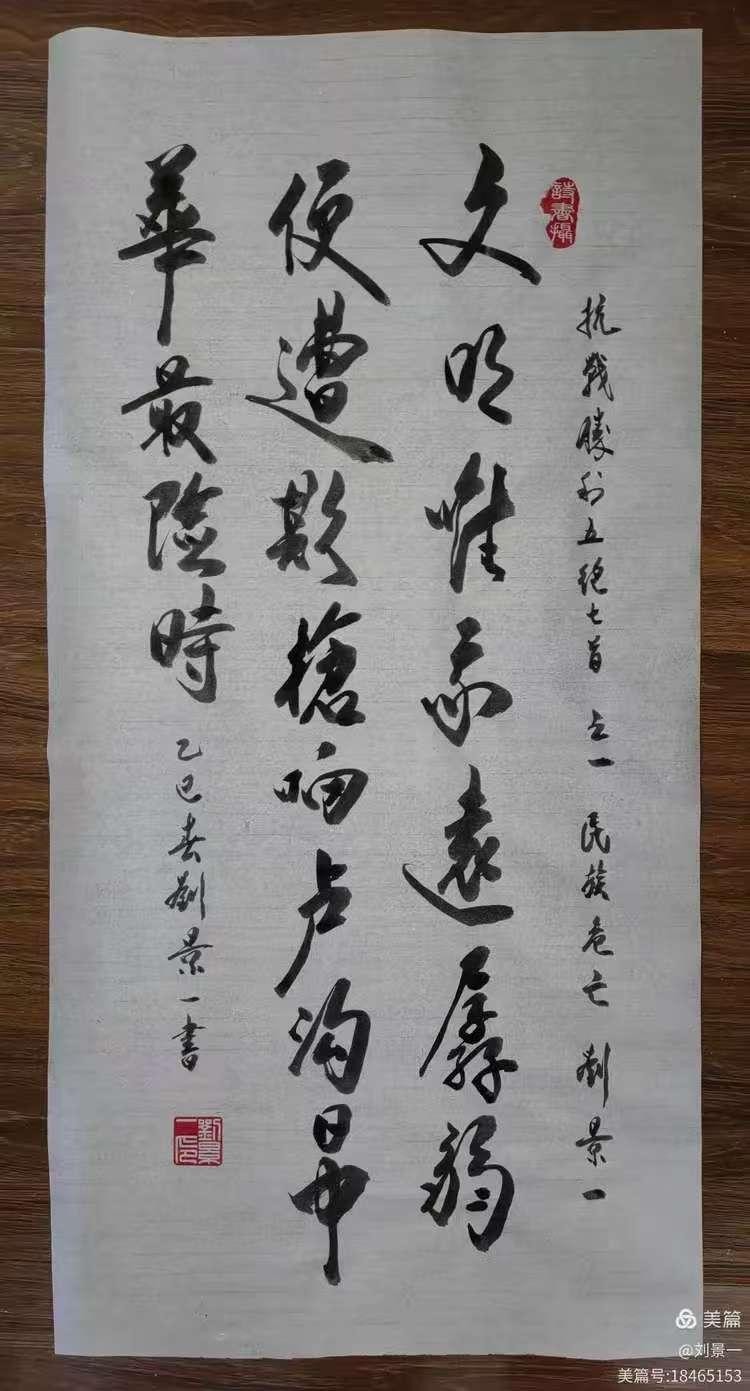 抗戰勝利五絕七首 之一 民族危亡 劉景一
詩書攝
文明唯我遠孱弱
便遭欺槍响卢沟日中
華最險時
乙巳春劉景一書
劉景一印
美篇
@刘景一
美篇号:18465153